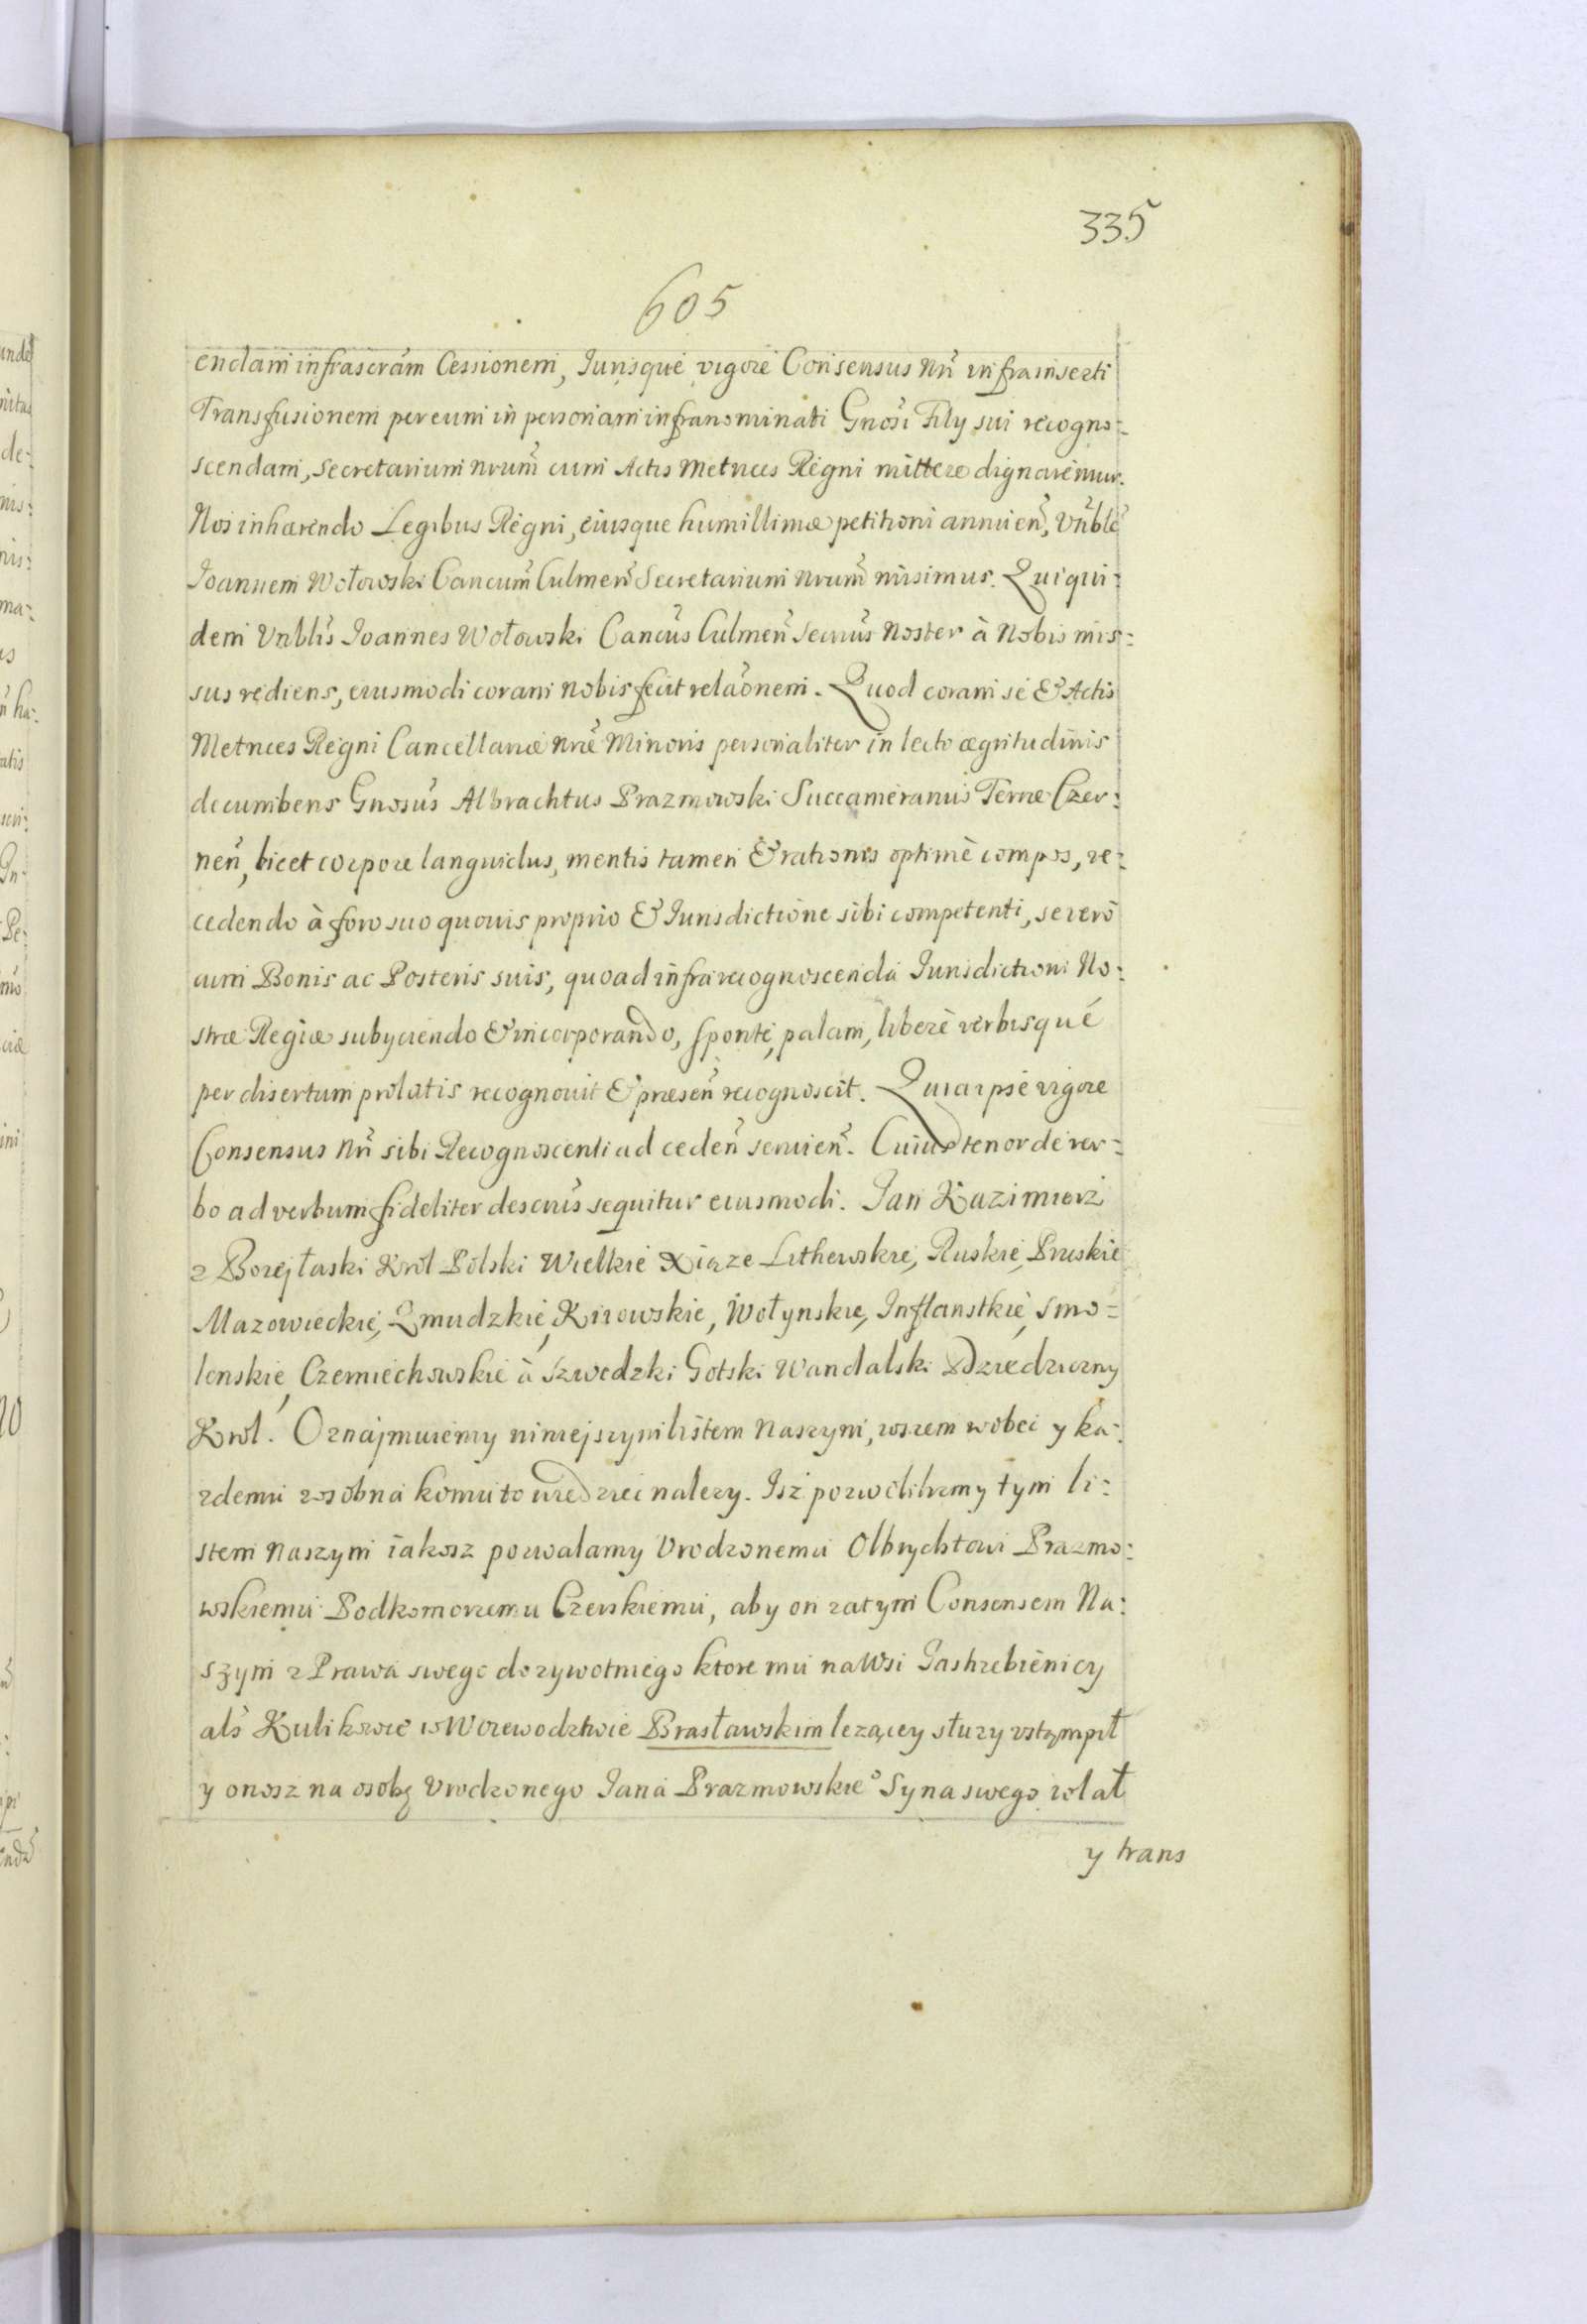 335
605
endam infrascrãm Cessionem, Jurisque vigore Consensus Nri͂ infrainserti
Transfusionem per eum in personam infranominati Gnosi͂ Filÿ sui recogno:
scendam, Secretarium nrum͂ cum Actis Metrices Regni mittere dignaremur.
Nos inhærendo Legibus Regni, eiusque humillimæ petitioni annuen͂, Vnble͂
Joannem Wołowski Cancum͂ Culmen͂ Secretarium nrum͂ misimus. Qui qui:
dem Vnblis͂ Joannes Wołowski Cancus͂ Culmen͂ Secrius͂ Noster à Nobis mis:
sus rediens, eiusmodi coram nobis fecit relaõnem. Quod coram se & Actis
Metrices Regni Cancellariæ nræ͂ Minoris personaliter in lecto ægritudinis
decumbens Gnosus͂ Albrachtus Prazmowski Succameranus Terræ Czer:
nen͂, licet corpore languidus, mentis tamen & rationis optimè compos, re:
cedendo à foro suo quovis proprio & Jurisdictione sibi competenti, se verò
cum Bonis ac Posteris suis, quoad infra recognoscenda Jurisdictioni No:
stræ Regiæ subÿciendo & incorporando, sponte, palam, liberè verbisque
per disertum prolatis recognovit & præsen͂ recognoscit. Quia ipse vigore
Consensus Nri͂ sibi Recognoscenti ad ceden͂ servien͂. Cuius tenor de ver:
bo ad verbum fideliter descrius͂ sequitur eiusmodi. Jan Kazimierz
z Bozej łaski Krol Polski Wielkie Xiąze Lithewskie, Ruskie, Pruskie
Mazowieckie, Zmudzkie, Kiiowskie, Wołynskie, Inflanstkie, Smo=
lenskie, Czerniechowskie à Szwedzki Gotski Wandalski Dziedziczny
Krol. Oznajmuiemy niniejszym listem Naszym, wszem wobec y ka:
zdemu zosobna komu to wiedziec nalezy. Isz pozwolilismy tym li:
stem Naszym iakosz pozwalamy Vrodzonemu Olbrychtowi Prazmo:
wskiemu Podkomorzemu Czerskiemu, aby on za tym Consensem Na:
szym z Prawa swego dozywotniego ktore mu na Wsi Jastrzebienicy
als͂ Kulikowie w Woiewodztwie Brasławskim lezącey słuzy vstąmpił
y onosz na osobę Vrodzonego Jana Prazmowskieº Syna swego wlał
y trans